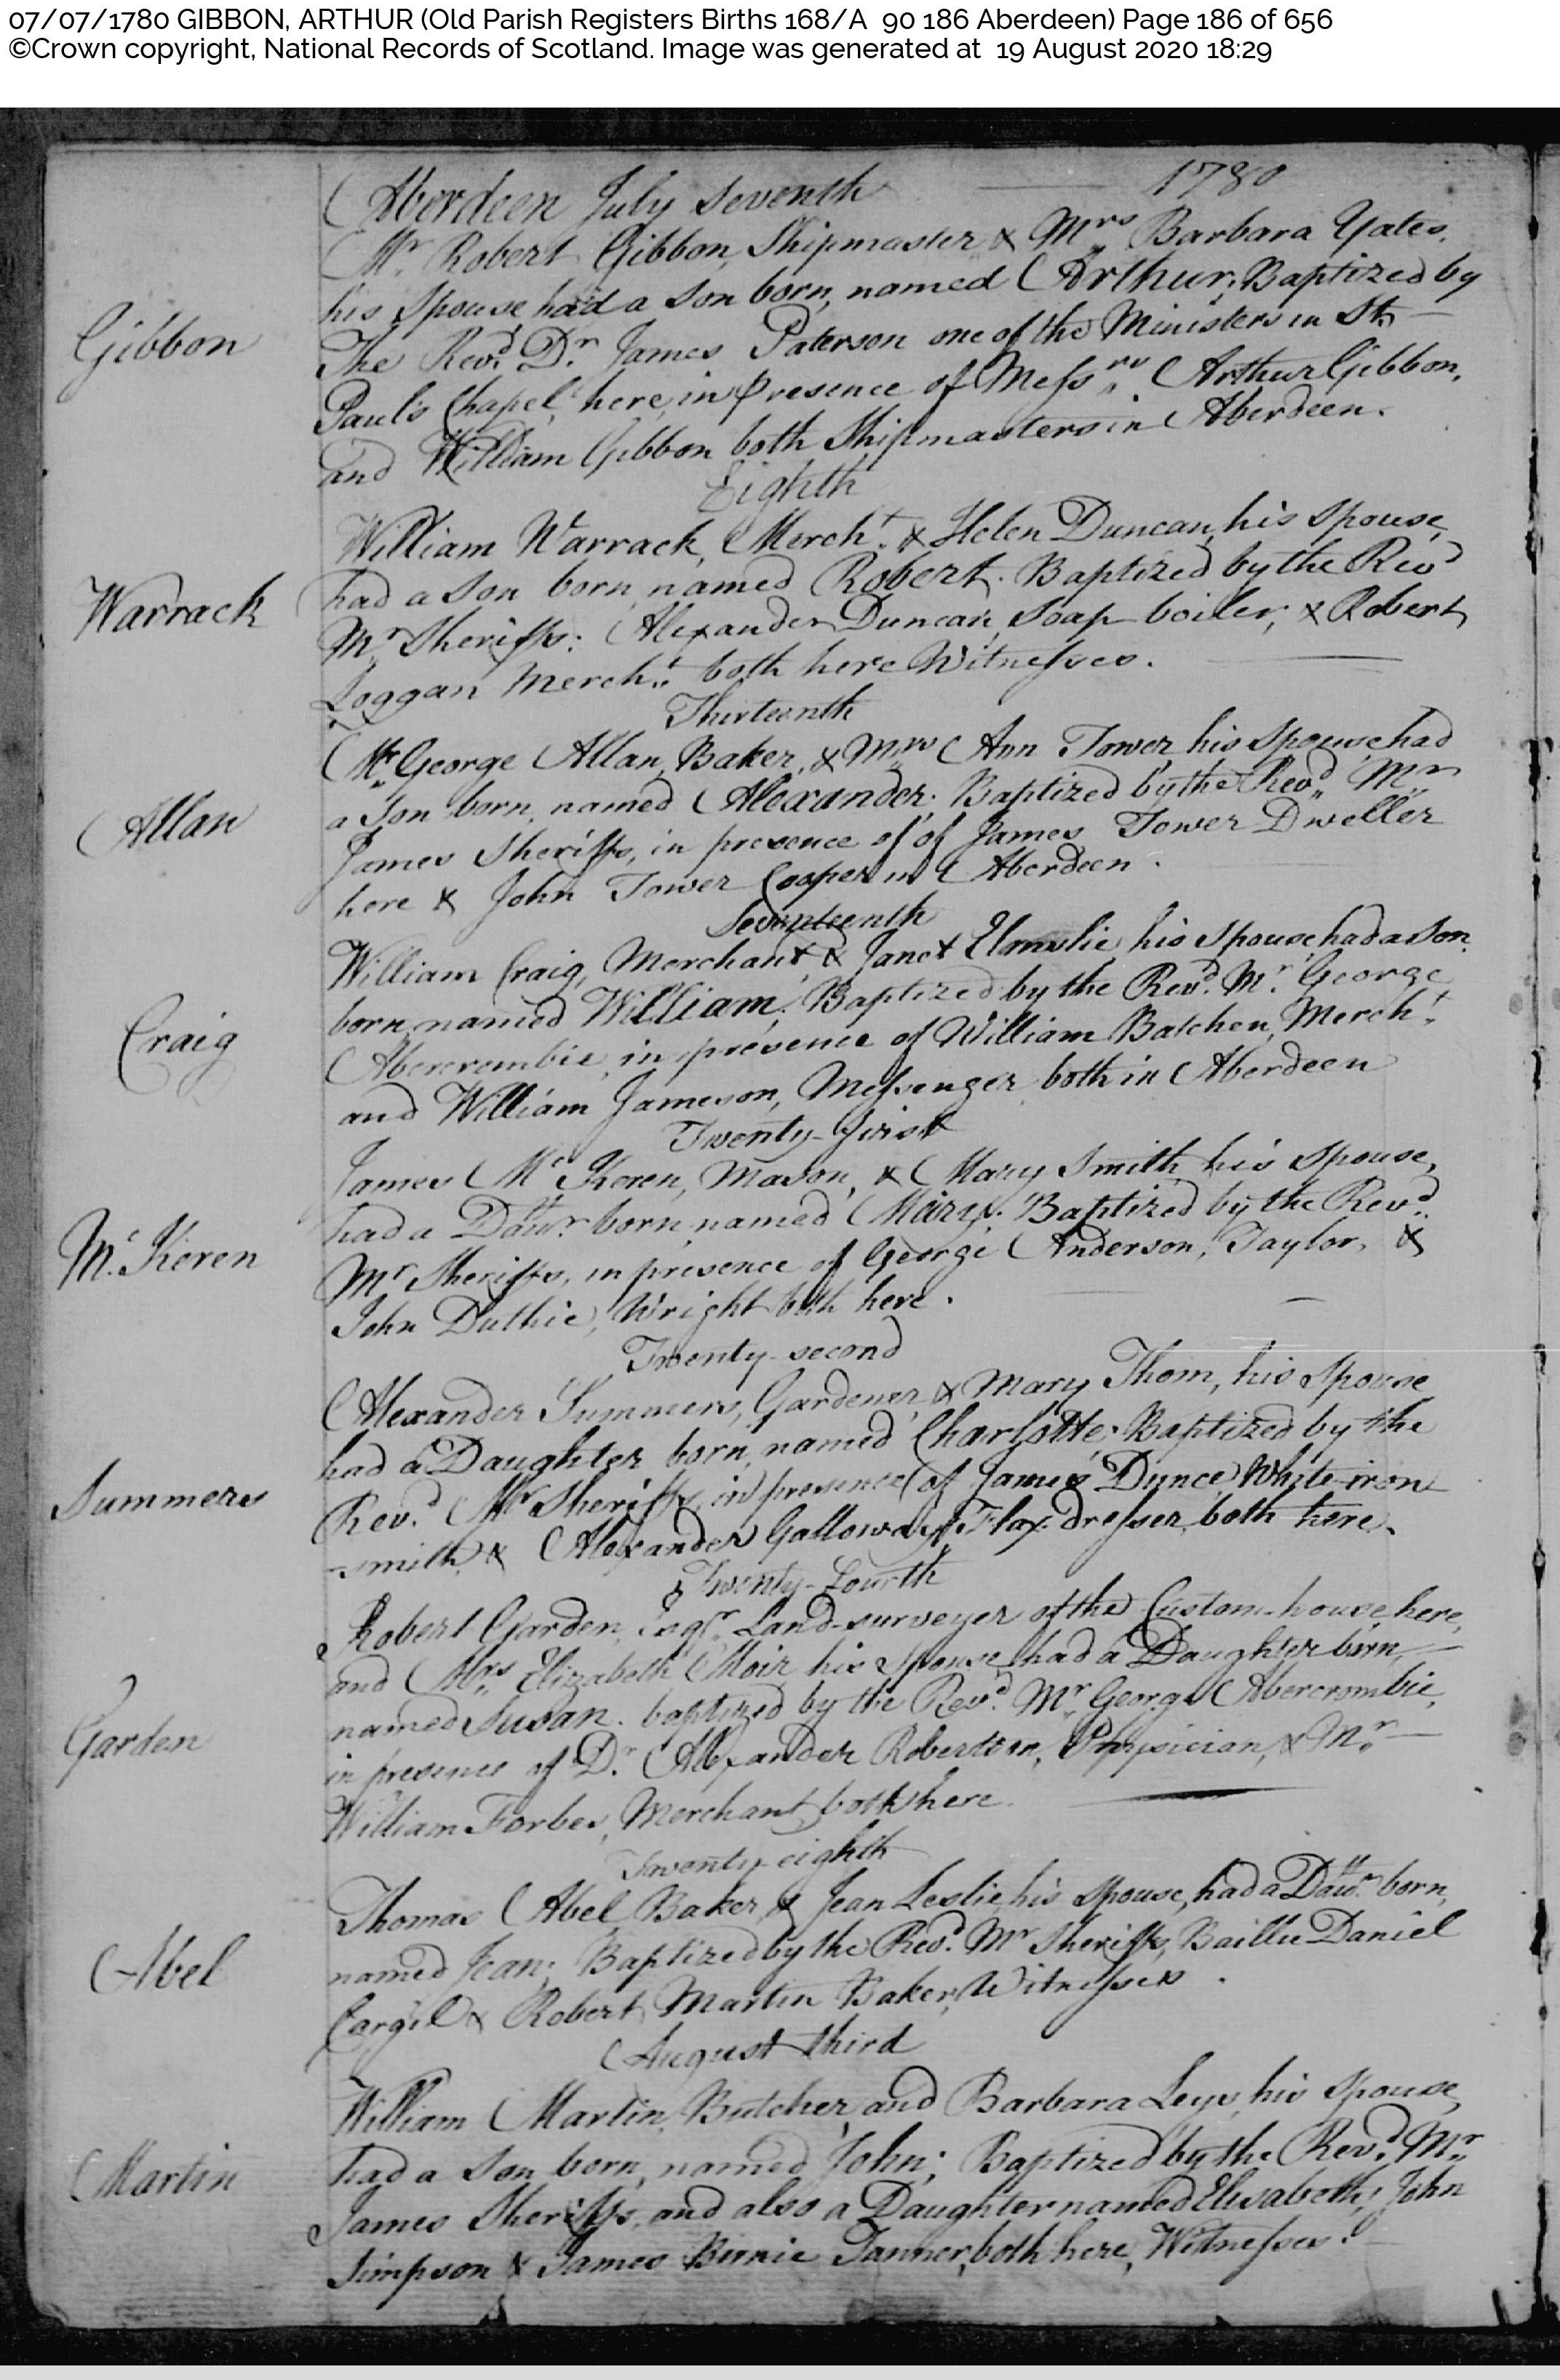 07/07/1780 GIBBON, ARTHUR (Old Parish Registers Births 168/A 90 186 Aberdeen) Page 186 of 656
©Crown copyright, National Records of Scotland. Image was generated at 19 August 2020 18:29
Aberdeen July Seventh — 1780
Gibbon
Mr. Robert Gibbon, Shipmaster & Mrs. Barbara Yates,
his Spouse, had a Son born, named Arthur; Baptized by
The Revd. Dr. James Paterson one of the Ministers in St.
Paul's Chapel, here, in presence of Messrs. Arthur Gibbon,
and William Gibbon both Shipmasters in Aberdeen.
Eighth
Warrack
William Warrack, Mercht. & Helen Duncan, his Spouse,
had a Son born, named Robert. Baptized by the Revd
Mr Sheriffs: Alexander Duncan, Soap-boiler, & Robert
Loggan Mercht. both here Witnesses.
Thirteenth
Allan
Mr. George Allan, Baker, & Mrs Ann Tower, his Spouse, had
a Son born, named Alexander. Baptized by the Revd. Mr.
James Sheriffs, in presence of of James Tower Dweller
here & John Tower Cooper in Aberdeen.
Seventeenth
Craig
William Craig, Merchant, & Janet Elmslie, his Spouse had a Son
born, named William; Baptized by the Revd. Mr. George
Abercrombie, in presence of William Batchen, Mercht.
and William Jameson, Messenger, both in Aberdeen
Twenty-first
Mc. Keren
James Mc Keren, Mason, & Mary Smith, his Spouse,
had a Dautr. born, named Mary. Baptized by the Revd.
Mr Sheriffs, in presence of George Anderson, Taylor, &
John Duthie, Wright both here.
Twenty-second
Summers
Alexander Summers, Gardener, & Mary Thom, his Spouse
had a Daughter born, named Charlotte; Baptized by the
Revd. Mr Sheriffs, in presence of James Dunce, White-iron
-smith, & Alexander Galloway, Flax-dresser, both here.
Twenty-fourth
Garden
Robert Garden, Esqr. Land-surveyer of the Custom-house, here,
and Mrs. Elizabeth Moir his Spouse, had a Daughter born,
named Susan. baptized by the Revd. Mr. George Abercrombie,
in presence of Dr. Alexander Robertson, Physician, & Mr.
William Forbes, Merchant, both here.
Twenty-eighth
Abel
Thomas Abel Baker, & Jean Leslie, his Spouse, had a Dautr. born,
named Jean; Baptized by the Revd. Mr Sheriffs, Baillie Daniel
Cargil & Robert Martin Baker, Witnesses.
August third
Martin
William Martin, Butcher, and Barbara Leys, his Spouse,
had a Son born, named John; Baptized by the Revd. Mr.
James Sheriffs, and also a Daughter named Elisabeth; John
Simpson & James Birnie Tanner, both here, Witnesses.